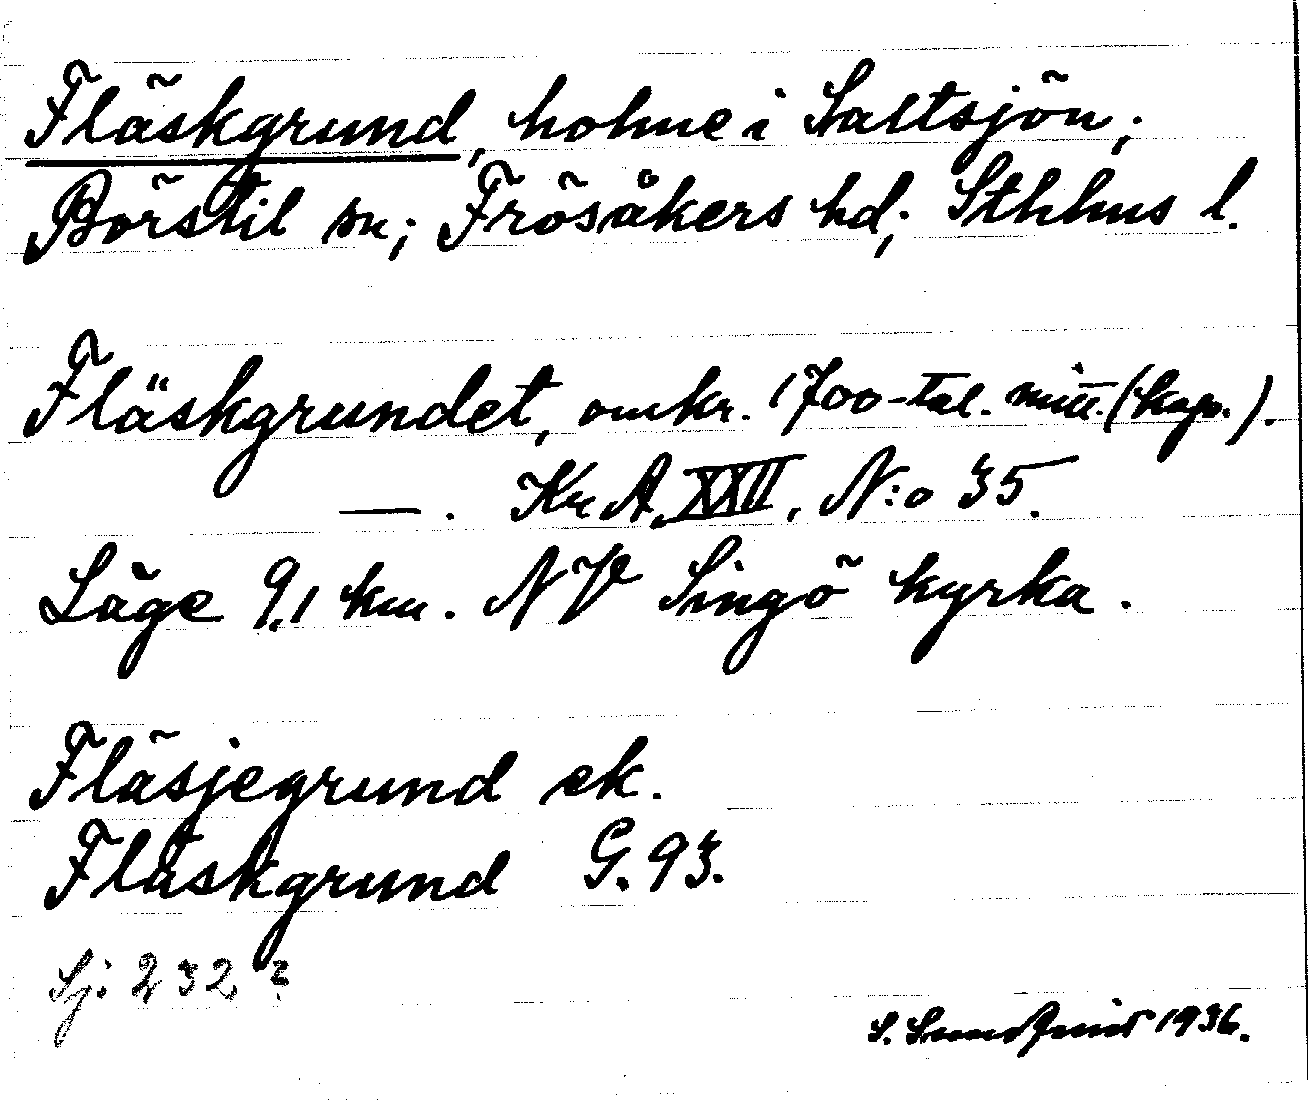 Fläskgrund, holme i Saltsjön;
Börstil sn; Frösåkers hd; Sthlms l.
Fläskgrundet, omkr. 1700-tal. mitt. (kop.).
—. Kr A. XXII, N:o 35.
Läge 9,1 km. NV Singö kyrka.
Fläsjegrund ek.
Fläskgrund G. 93.
Sj: 232 ?
S. Sundqvist 1936.